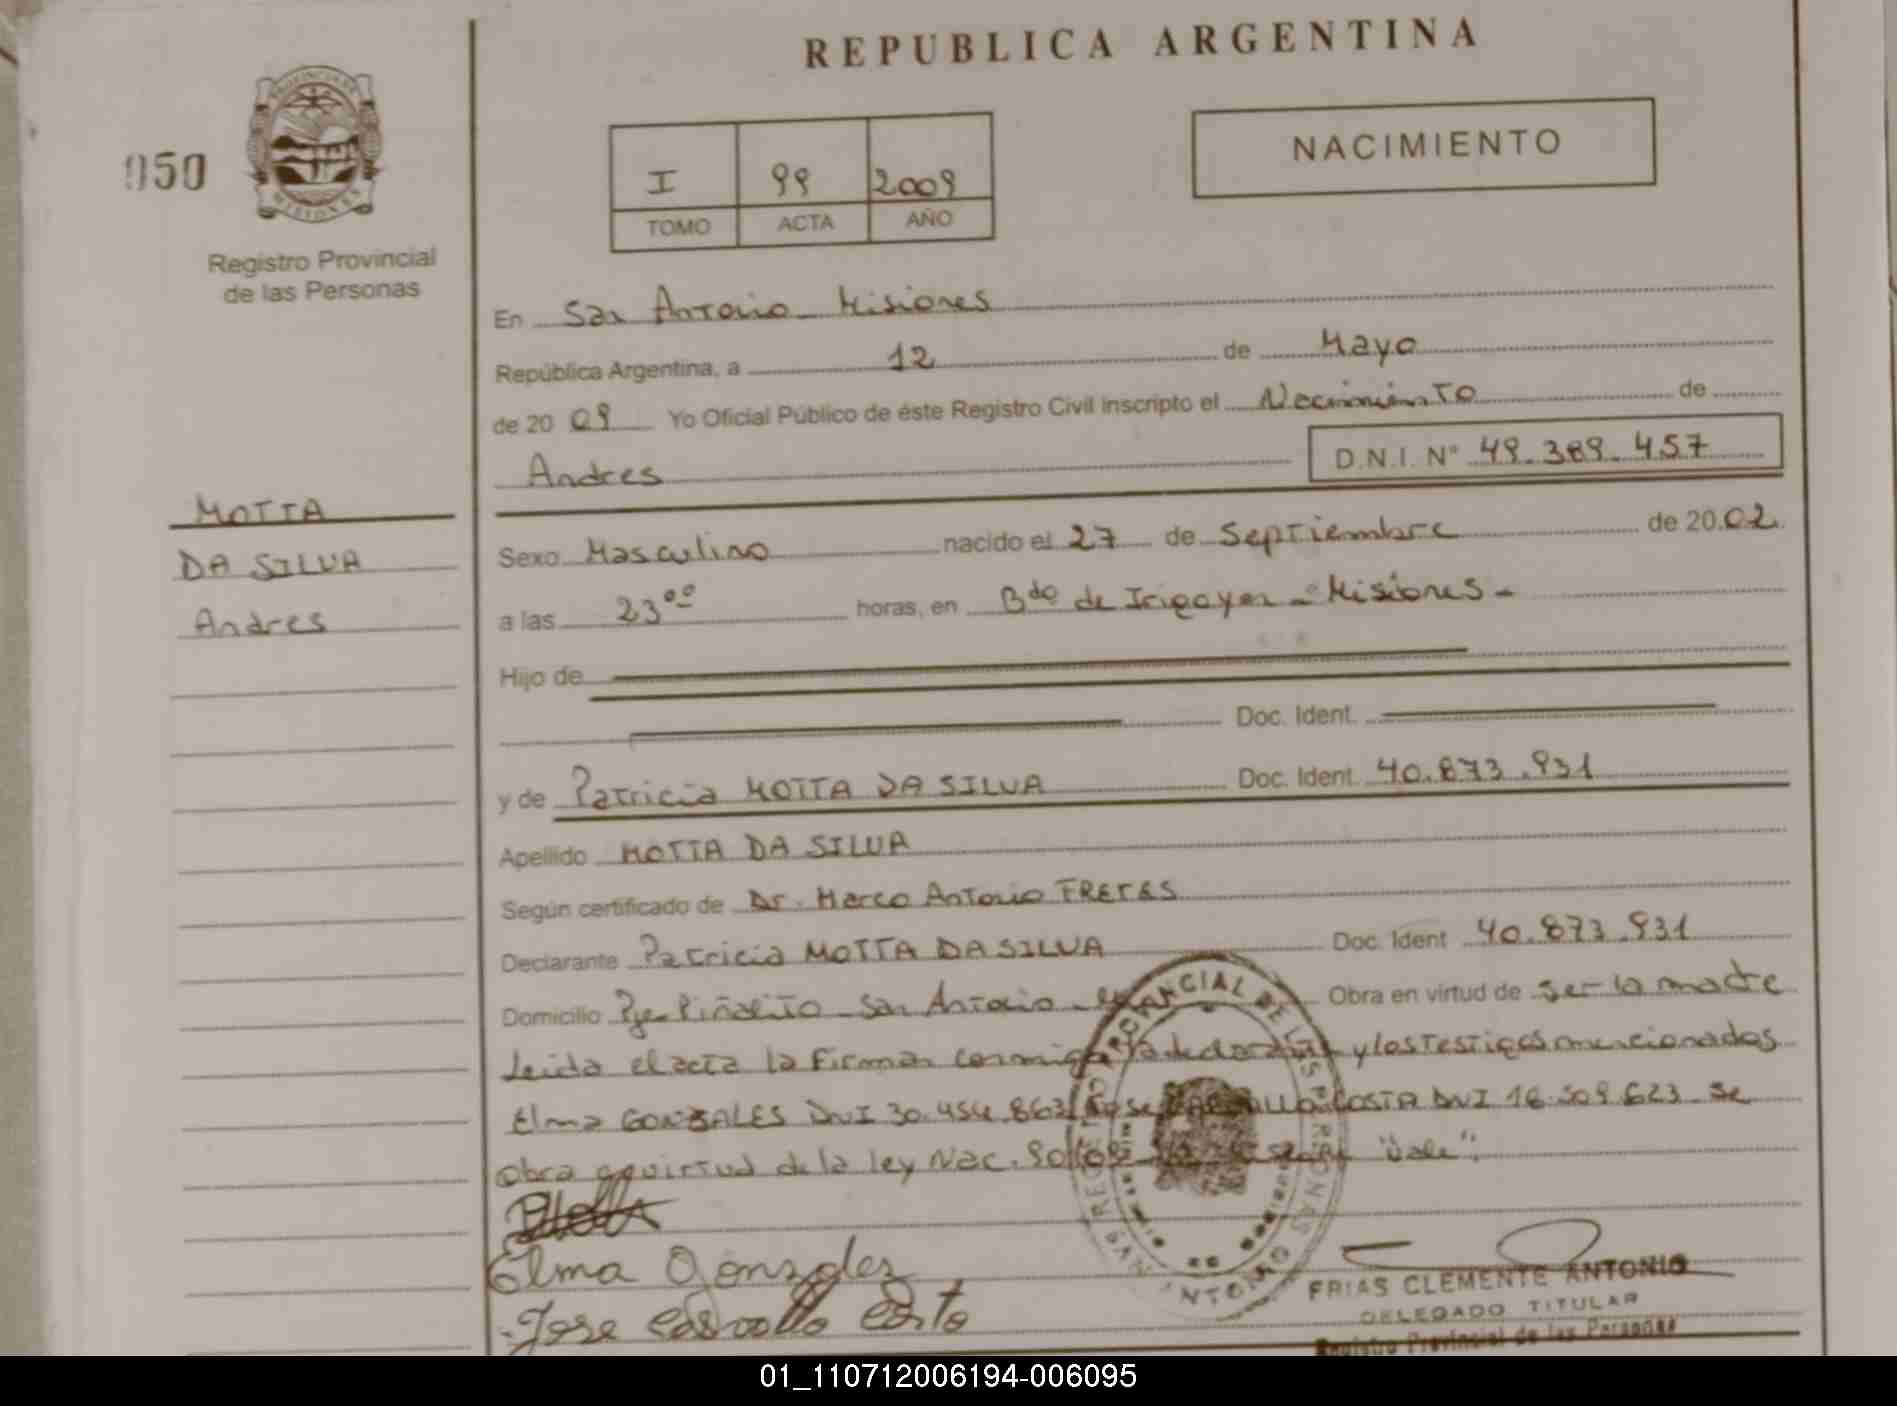 REPUBLICA ARGENTINA
PROVINCIA DE
MISIONES
050
Registro Provincial
de las Personas
I 99 2009
TOMO ACTA AÑO
NACIMIENTO
En San Antonio - Misiones
República Argentina, a 12 de Mayo
de 2009 Yo Oficial Público de éste Registro Civil Inscripto el Nacimiento de
Andres D.N.I. N° 49.389.457
MOTTA
DA SILVA
Andres
Sexo Masculino nacido el 27 de Septiembre de 20.02.
a las 23°° horas, en Bdo de Irigoyen - Misiones -
Hijo de
Doc. Ident.
y de Patricia MOTTA DA SILVA Doc. Ident. 40.873.931
Apellido MOTTA DA SILVA
Según certificado de Dr. Marco Antonio FRETES
Declarante Patricia MOTTA DA SILVA Doc. Ident 40.873.931
Domicilio Pje Piñalito - San Antonio - Obra en virtud de ser la madre
Leida el acta la firman conmigo la declarante y los testigos mencionados
Elma GONZALES DNI 30.454.863 COSTA DNI 18.509.623 - se
obra en virtud de la ley Nac. "Vale".
Elma Gonzales
Jose Costa
REGISTRO PROVINCIAL DE LAS PERSONAS
FRIAS CLEMENTE ANTONIO
DELEGADO TITULAR
Registro Provincial de las Personas
01_110712006194-006095